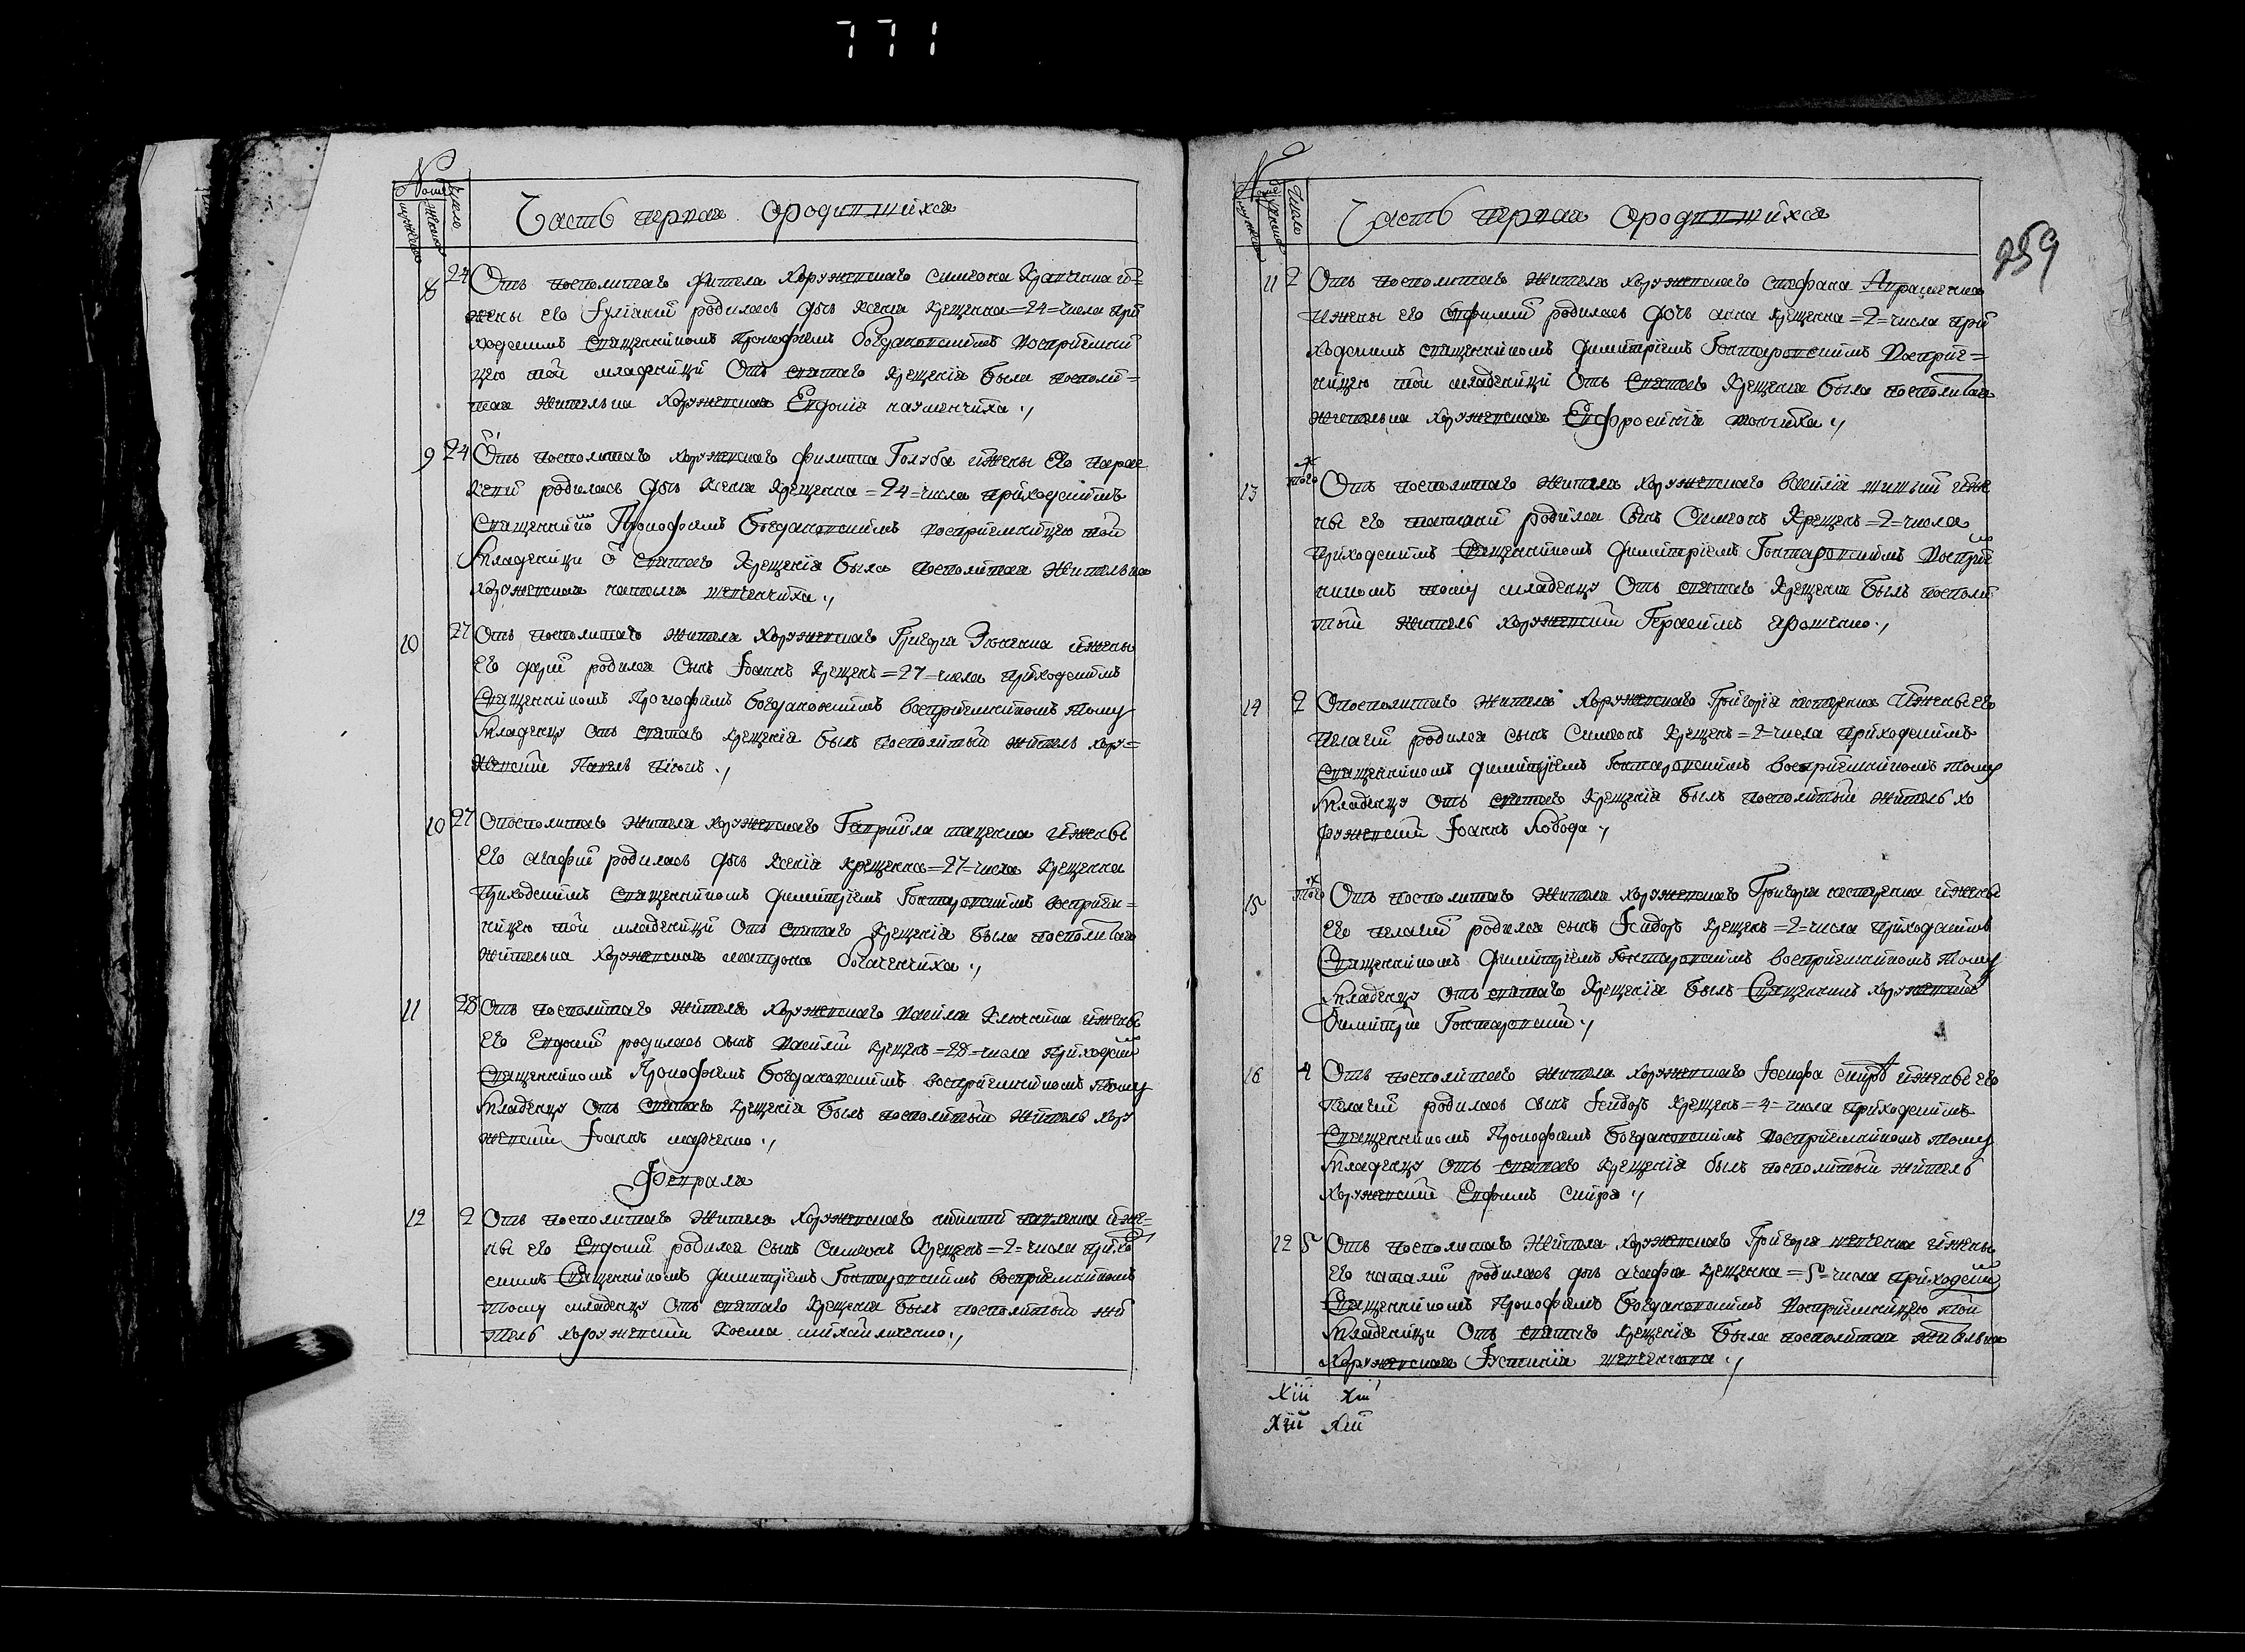 771
Часть первая ородившихся
8 24 Отъ посполитаго жителя хоружевскаго Симеона
жены его Іуліании родилась дочь Ксенія крещенна =24= числа при
ходскимъ священникомъ Прокофіемъ Богдановскимъ восприемни
цею той младеници отъ святаго крещенія была посполи=
тая жителька хоружевская Евдокія науменчиха
9 24 Отъ посполитаго хоружевскаго Филиппа Голуба ижены его Парас
кеви родилась дочь Ксенія крещенна =24= числа приходскимъ
священнико Прокофіемъ Богдановскимъ восприемницею той
младеници ѿ святаго крещенія была посполитая жителька
хоружевская шевченчиха
10 27 Отъ посполитаго жителя хоружевскаго Григорія ижены
его родился сынъ Іоаннъ крещенъ =27= числа приходскимъ
священникомъ Прокофіемъ Богдановскимъ восприемникомъ тому
младенцу отъ святаго крещенія былъ посполитый житель хору=
жевский Павелъ
10 27 Отпосполитаго жителя хоружевскаго Гавриила иженаы
его Агафии родилась дочь Ксенія крещенна =27= числа крещенна
приходскимъ священникомъ Димитріемъ Гонтаровскимъ восприем=
ницею той младеници отъ святаго крещенія была посполитая
жителька хоружевская Матрона
11 28 Отъ посполитаго жителя хоружевскаго ижены
его Евдокии родилась сынъ крещенъ =28= числа приходски
священникомъ Прокофіемъ Богдановскимъ восприемникомъ тому
младенцу отъ святаго крещенія былъ посполитый житель хору
жевский Іоаннъ марченко
Февраля
12 2 Отъ посполитаго жителя хоружевскаго павленка иже=
ны его Евдокии родился сынъ Симеонъ крещенъ =2= числа прихо
скимъ священникомъ Димитріемъ Гонтаровскимъ восприемникомъ
тому младенцу отъ святаго крещенія былъ посполитый жи
тель хоружевский Косма михайличенко
259
Часть первая ородившихся
11 2 Отъ посполитаго жителя хоружевскаго Стефана
ижены его родилась дочь Анна крещенна =2= числа при
ходскимъ священникомъ Димитріемъ Гонтаровскимъ восприе=
ницею той младеници отъ святаго крещенія была посполитая
жителька хоружевская Евфросиния
13 того Отъ посполитаго жителя хоружевскаго Василія иже
ны его родился сынъ Симеонъ крещенъ =2= числа
приходскимъ священникомъ Димитріемъ Гонтаровскимъ восприе
никомъ тому младенцу отъ святаго крещенія былъ посполи
тый житель хоружевский Герасимъ
14 2 Отпосполитаго жителя хоружевскаго Григорія нестеренка ижены его
Пелагии родился сынъ Симеонъ крещенъ =2= числа приходскимъ
священникомъ Димитріемъ Гонтаровскимъ восприемникомъ тому
младенцу отъ святаго крещенія былъ посполитый житель хо
ружевский Іоаннъ Лобода
15 того Отъ посполитаго жителя хоружевскаго Григорія нестеренка ижены
его Пелагии родился сынъ Ісидоръ крещенъ =2= числа приходскимъ
священникомъ Димитріемъ Гонтаровскимъ восприемникомъ тому
младенцу отъ святаго крещенія былъ священникъ хоружевский
Димитрие Гонтаровский
16 4 Отъ посполитаго жителя хоружевскаго Іосифа ижены его
Пелагии родилась сынъ Ісидоръ крещенъ =4= числа приходскимъ
священникомъ Прокофіемъ Богдановскимъ восприемникомъ тому
младенцу отъ святаго крещенія былъ посполитый житель
хоружевский Евфимъ
12 5 Отъ посполитаго жителя хоружевскаго Григорія шевченка ижены
его Наталии родилась дочь Агафія крещенна =5= числа приходски
священникомъ Прокофіемъ Богдановскимъ восприемницею той
младеници отъ святаго крещенія была посполитая жителька
хоружевская Іустинія
xiii xiii
xiii xiii